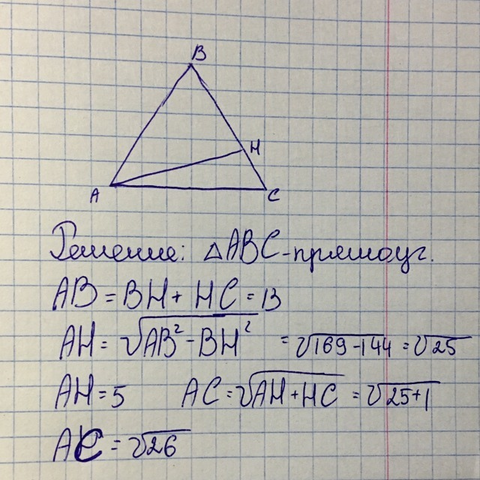 B
H
A
C
Решение: △ABC-прямоуг.
AB = BH + HC = 13
AH = √AB² - BH² = √169-144 = √25
AH = 5 AC = √AH + HC = √25+1
AC = √26